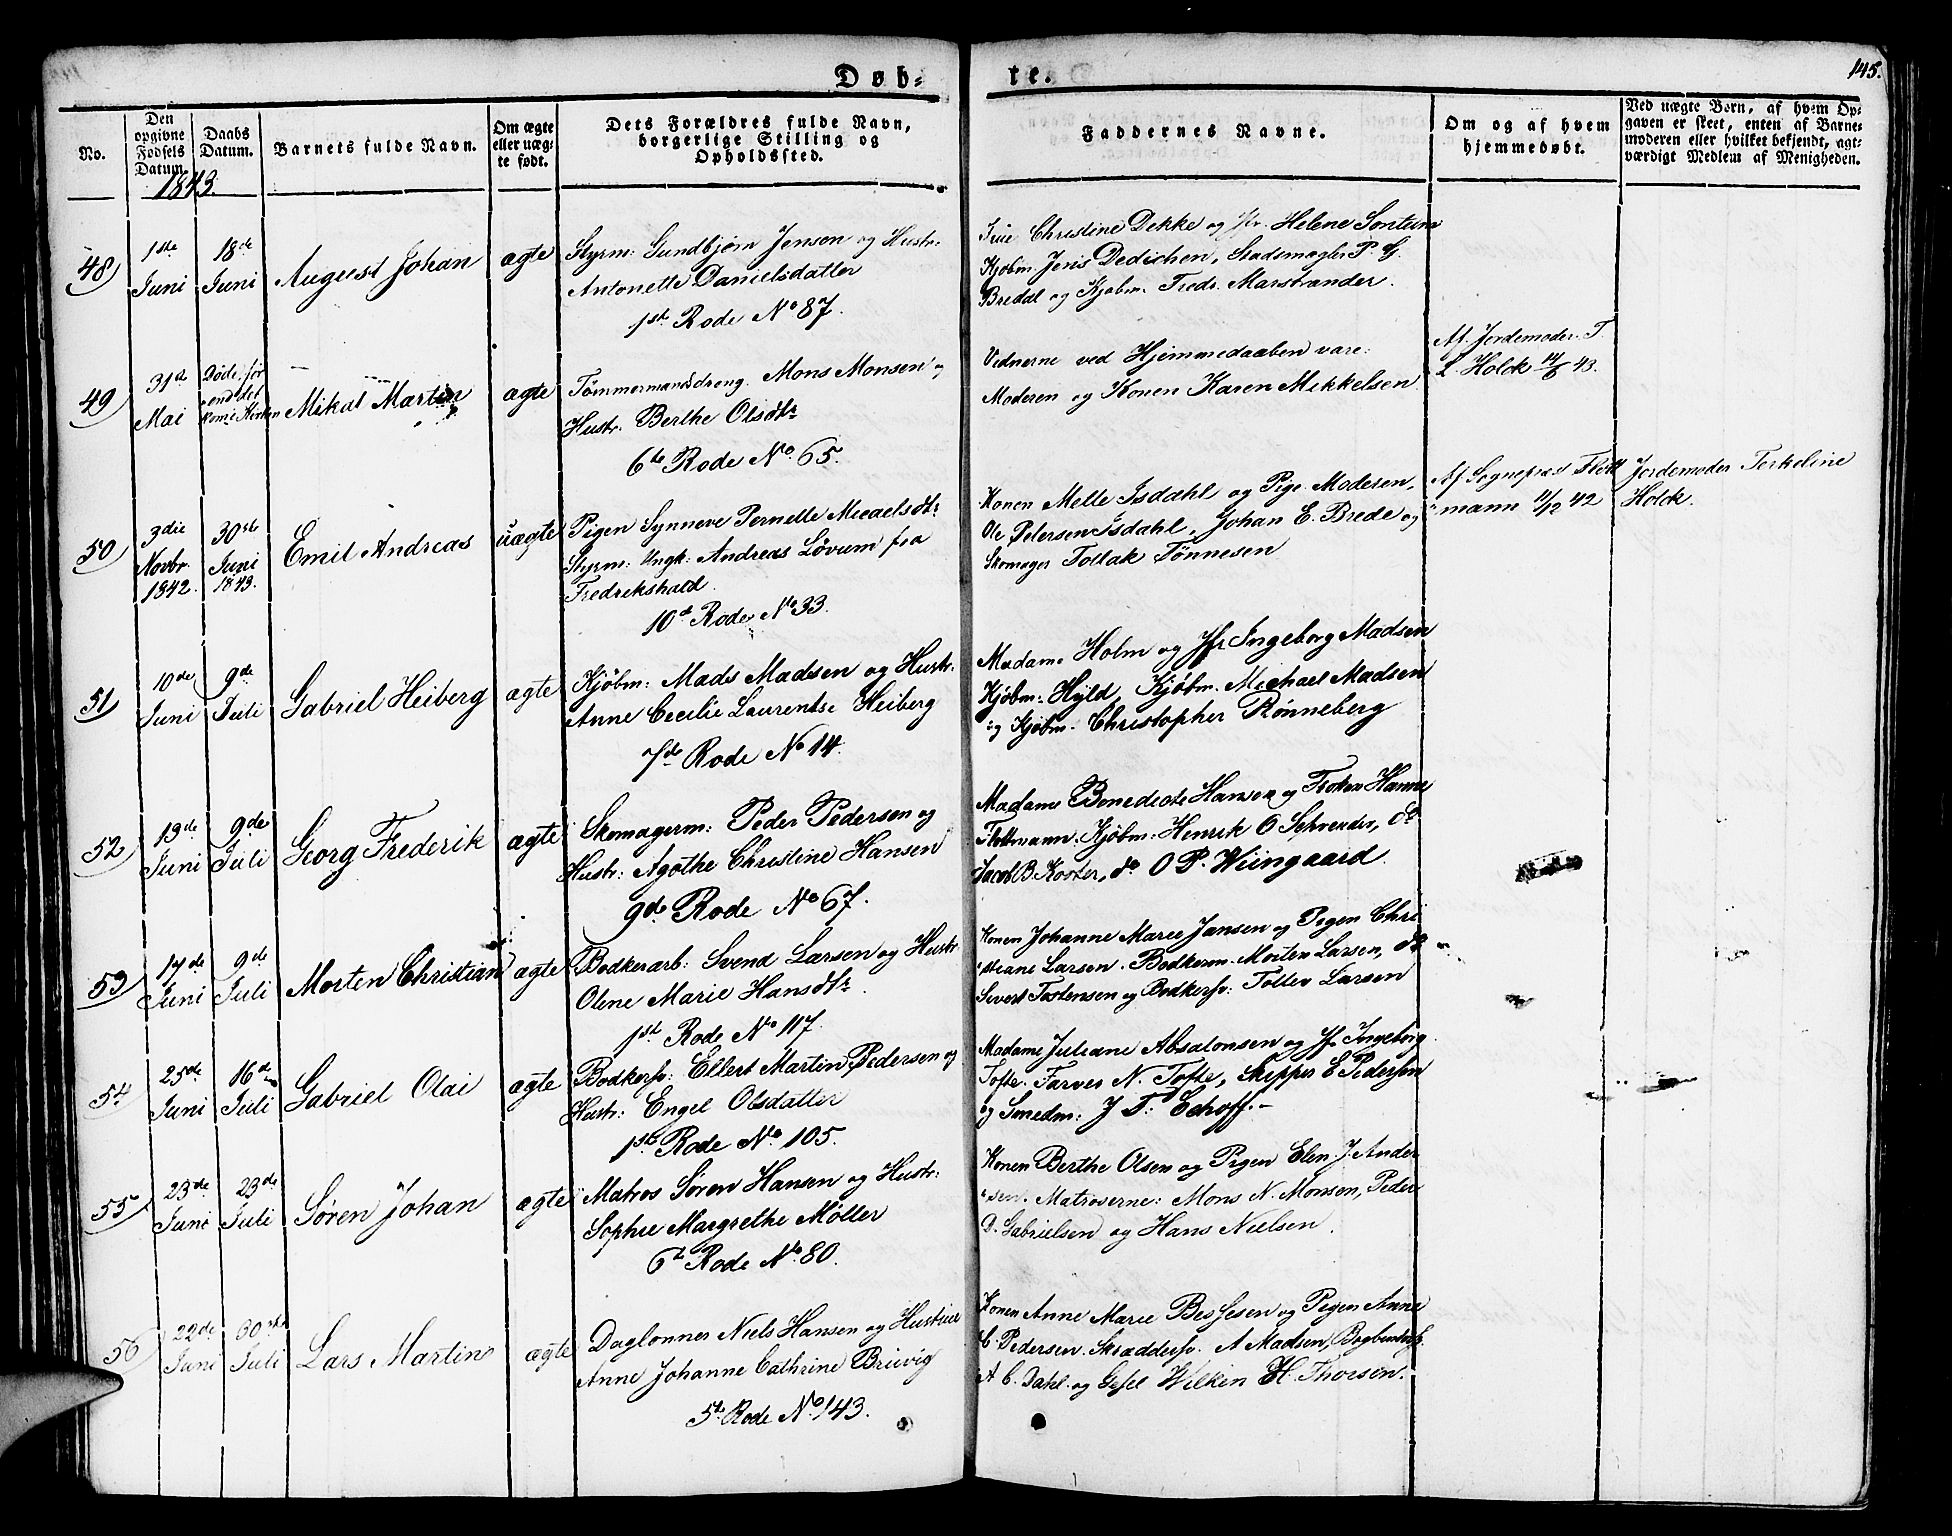 Døb-
te.
145.
No.
Den opgivne Fødsels Datum.
Daabs Datum.
Barnets fulde Navn.
Om ægte eller uægte født.
Dets Forældres fulde Navn, borgerlige Stilling og Opholdssted.
Faddernes Navne.
Om og af hvem hjemmedøbt.
Ved uægte Børn, af hvem Opgaven er skeet, enten af Barnemoderen eller hvilket bekjendt, agtværdigt Medlem af Menigheden.
1843.
48
1ste Juni
18de Juni
August Johan
ægte
Styrm: Gundbjørn Jensen og Hustr:
Antonette Danielsdatter
1ste Rode No 87.
Christine Dekke og Jfr. Helene Sontum
Kjøbm. Jens Dedichen, Stadsmægler P. G.
Bredal og Kjøbm. Fredr. Marstrander.
49
31te Mai
Døde før end det kom i Kirken
Mikal Martin
ægte
Tømmermandsdreng. Mons Monsen og
Hustr. Berthe Olsdtr
6te Rode No. 65.
Vidnerne ved Hjemmedaaben vare:
Moderen og Konen Karen Mikkelsen
Af Jordemoder T.
L. Holck 14/6 43.
50
3die Novbr. 1842.
30te Juni 1843.
Emil Andreas
uægte
Pigen Synneve Pernelle Micaelsdtr
Styrm: Ungk: Andreas Løvum fra
Fredrikshald.
10d Rode No 33.
Konen Melle Isdahl og Pige Moderen,
Ole Petersen Isdahl, Johan E. Brede og
Skomager Tollak Tønnesen
Af Sognepræst Flott
mann 11/12 42
Jordemoder Terkeline
Holck.
51
10de Juni
9de Juli
Gabriel Heiberg
ægte
Kjøbm: Mads Madsen og Hustr.
Anne Cecilie Laurentse Heiberg
7de Rode No 14.
Madame Holm og Jfr Ingeborg Madsen
Kjøbm: Hyld, Kjøbm. Michael Madsen
og Kjøbm. Christopher Rønneberg
52
13de Juni
9de Juli
Georg Frederik
ægte
Skomagerm: Peder Pedersen og
Hustr: Agothe Christine Hansen
9de Rode No 67.
Madame Benedicte Hansen og Frøken Hanne
Flottmann. Kjøbm: Henrik O Schrender, do
Jacob B. Koster, do O P. Wiingaard.
53
17de Juni
9de Juli
Morten Christian
ægte
Bødkerarb: Svend Larsen og Hustr
Olene Marie Hansdtr.
1ste Rode No 117.
Konen Johanne Marie Jansen og Pigen Chri
stiane Larsen. Bødkerm. Morten Larsen, do
Sivert Tostensen og Bødkersv: Tollev Larsen
54
25de Juni
16de Juli
Gabriel Olai
ægte
Bødkersv: Ellert Martin Pedersen og
Hustr: Engel Olsdatter
1ste Rode No 105.
Madame Juliane Absalonsen og Jfr Ingeborg
Tofte. Farver N. Tofte, Skipper E Pedersen
og Smedm: J T: Echoff.-
55
23de Juni
23de Juli
Søren Johan
ægte
Matros Søren Hansen og Hustr:
Sophie Margrethe Møller
6te Rode No. 80.
Konen Berthe Olsen og Pigen Elen J. Ander
sen. Matroserne: Mons N. Monsen, Peder
D. Gabrielsen og Hans Nielsen.
56
22de Juni
30te Juli
Lars Martin
ægte
Daglønner Niels Hansen og Hustrue
Anne Johanne Cathrine Brievig
5te Rode No 143.
Konen Anne Marie Bessesen og Pigen Anne
C. Pedersen. Skræddersv. A Madsen, Bogbinders.
A C. Dahl. og Gesel Wilken H. Thorsen.